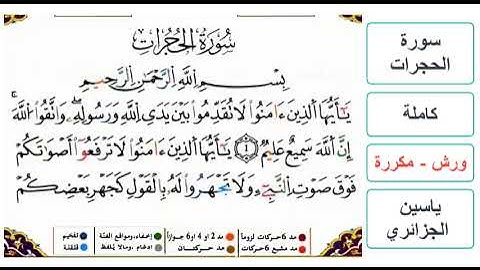 سورة الحجرات
بِسْمِ اللَّهِ الرَّحْمَٰنِ الرَّحِيمِ
يَٰأَيُّهَا ٱلَّذِينَ ءَامَنُوا لَا تُقَدِّمُوا بَيْنَ يَدَىِ ٱللَّهِ وَرَسُولِهِۦ وَٱتَّقُوا ٱللَّهَ
إِنَّ ٱللَّهَ سَمِيعٌ عَلِيمٌ ١ يَٰأَيُّهَا ٱلَّذِينَ ءَامَنُوا لَا تَرْفَعُوا أَصْوَٰتَكُمْ
فَوْقَ صَوْتِ ٱلنَّبِيٓءِ وَلَا تَجْهَرُوا لَهُۥ بِالْقَوْلِ كَجَهْرِ بَعْضِكُمْ
مد 6 حركات لزوما
مد 2 او 4 او 6 جوازا
إخفاء، ومواقع الغنة
تفخيم
مد مشبع 6 حركات
مد حركتان
ادغام، ومالا يلفظ
قلقلة
سورة
الحجرات
كاملة
ورش - مكررة
ياسين
الجزائري